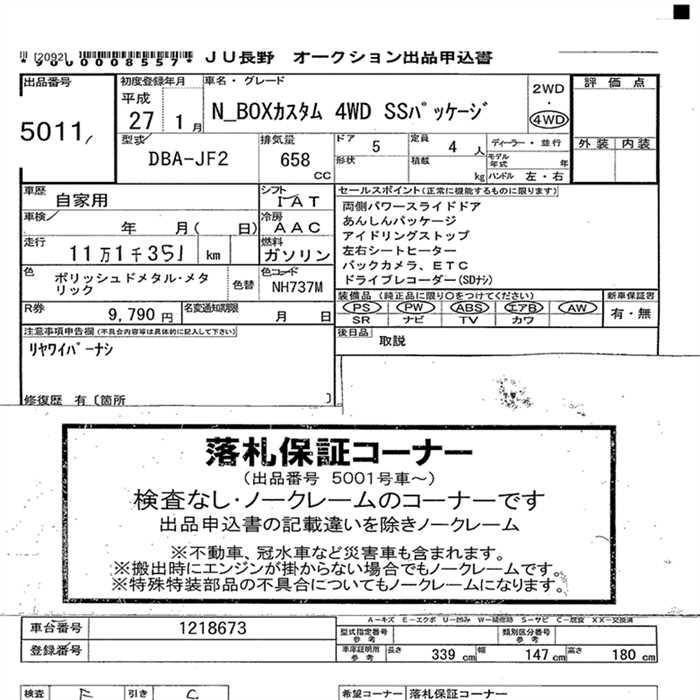 [2092]
*9000008557* JU長野 オークション出品申込書
出品番号
5011
初度登録年月
平成
27 1月
車名・グレード
N_BOXカスタム 4WD SSパッケージ
2WD
・
4WD
評価点
外装 内装
型式
DBA-JF2
排気量
658
CC
ドア 5
定員 4 人
形状
積載 kg
ディーラー・並行
モデル年式 年
ハンドル 左・右
車歴 自家用
シフト
IAT
車検 年 月( 日)
冷房
AAC
走行 11万1千351 km
燃料
ガソリン
色
ポリッシュドメタル・メタリック
色替
色コード
NH737M
R券 9,790円
名変通知期限 月 日
セールスポイント(正常に機能するものに限ります)
両側パワースライドドア
あんしんパッケージ
アイドリングストップ
左右シートヒーター
バックカメラ、ETC
ドライブレコーダー(SDナシ)
装備品 (純正品に限り○をつけてください)
PS PW ABS エアB AW
SR ナビ TV カワ
新車保証書
有・無
注意事項申告欄(不具合内容等は具体的に記入して下さい)
リヤワイパーナシ
後日品 取説
修復歴 有〔箇所 〕
落札保証コーナー
(出品番号 5001号車~)
検査なし・ノークレームのコーナーです
出品申込書の記載違いを除きノークレーム
※不動車、冠水車など災害車も含まれます。
※搬出時にエンジンが掛からない場合でもノークレームです。
※特殊特装部品の不具合についてもノークレームになります。
A-キズ E-エクボ U-凹み W-補修跡 S-サビ C-腐食 XX-交換済
車台番号 1218673
登録番号
型式指定番号
参考
類別区分番号
参考
車庫証明用
参考
長さ 339 cm 幅 147 cm 高さ 180 cm
検査
引き
希望コーナー 落札保証コーナー